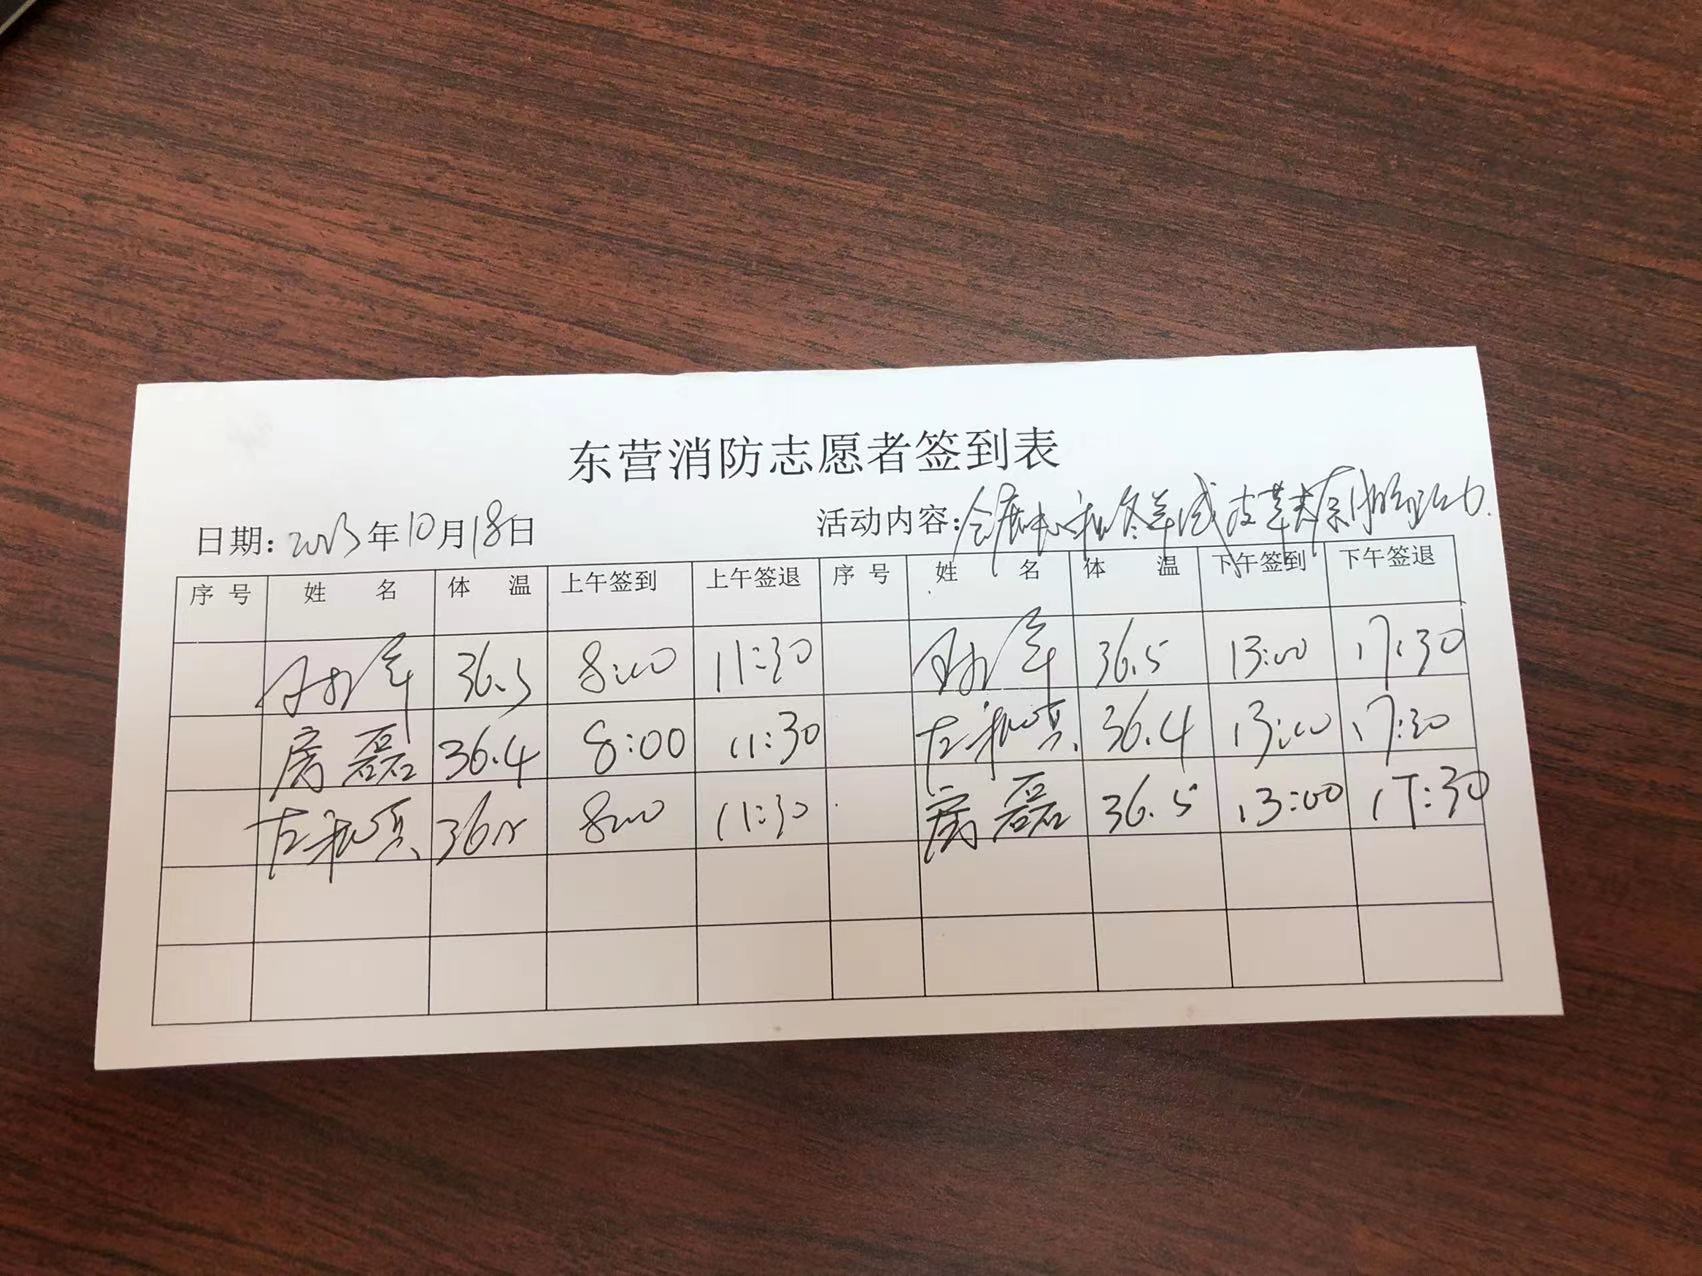 东营消防志愿者签到表
日期: 2023年10月18日 活动内容: 会展中心秋冬羊绒皮草
序号 姓 名 体 温 上午签到 上午签退 序号 姓 名 体 温 下午签到 下午签退
36.5 8:00 11:30 36.5 13:00 17:30
房磊 36.4 8:00 11:30 左 36.4 13:00 17:30
左 36.5 8:00 11:30 房磊 36.5 13:00 17:30